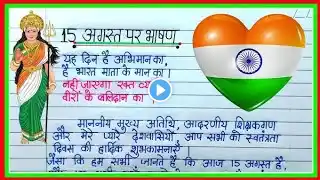 15 अगस्त पर भाषण
यह दिन है अभिमान का,
है भारत माता के मान का।
नहीं जाएगा रक्त व्य
वीरों के बलिदान का।
माननीय मुख्य अतिथि, आदरणीय शिक्षकगण
और मेरे प्यारे देशवासियों, आप सभी को स्वतंत्रता
दिवस की हार्दिक शुभकामनाएँ।
जैसा कि हम सभी जानते हैं कि आज 15 अगस्त है,